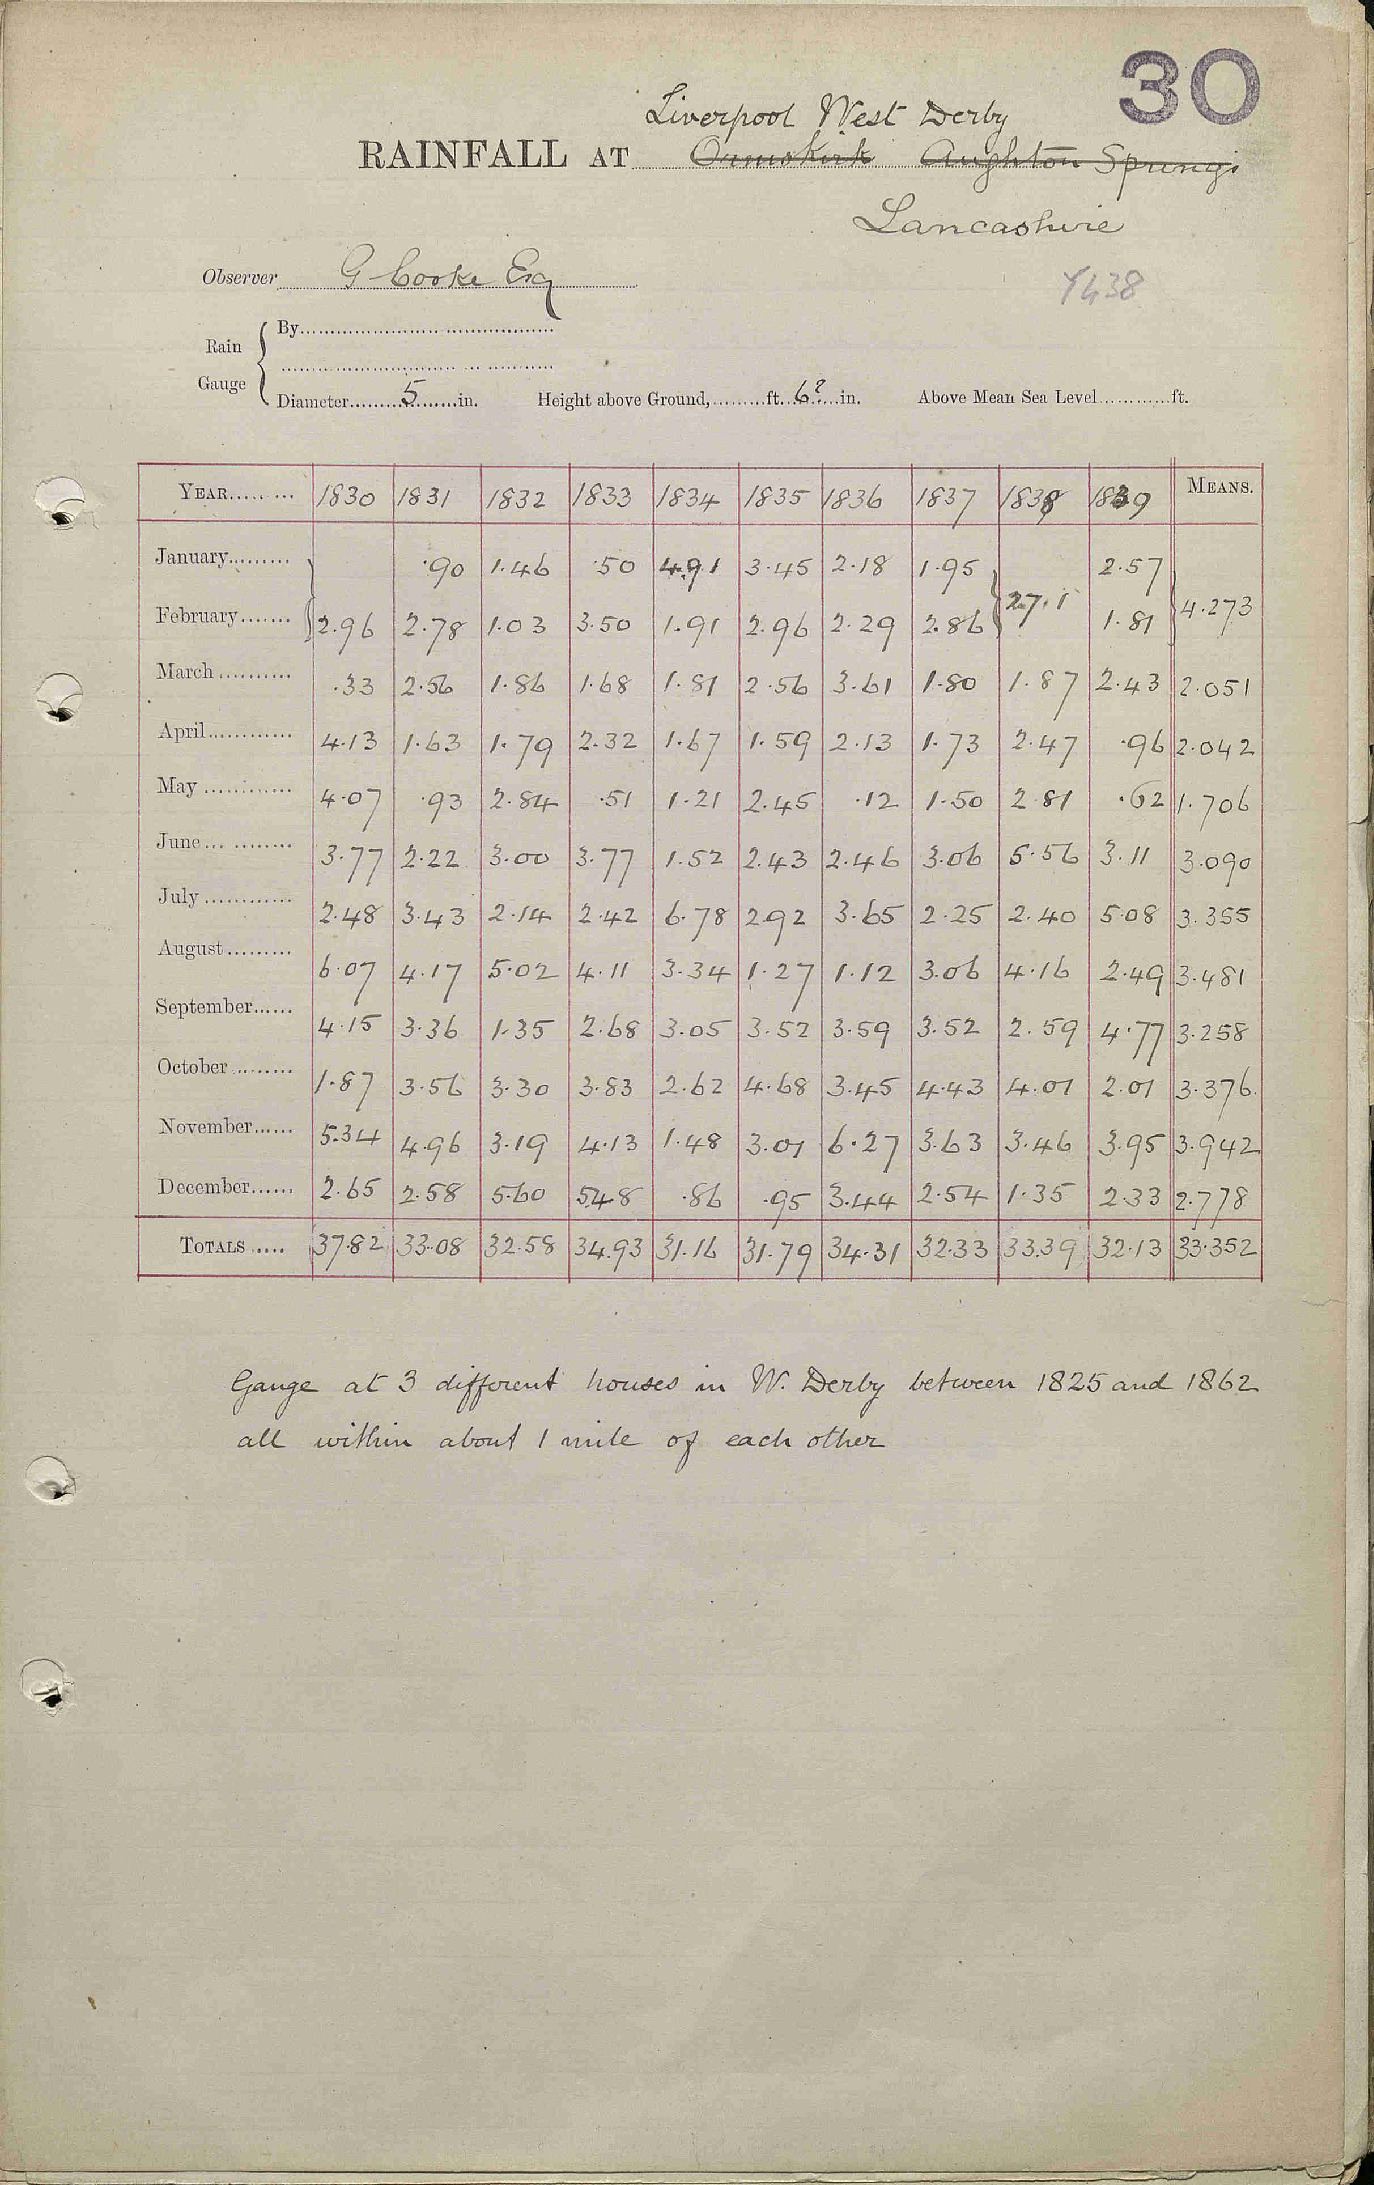 30
Liverpool West Derby
RAINFALL AT Ormskirk Aughton Springs
Lancashire
Observer G Cooke Esq
Y438
Rain Gauge { By
Diameter 5 in. Height above Ground, ft. 6? in. Above Mean Sea Level ft.
YEAR 1830 1831 1832 1833 1834 1835 1836 1837 1838 1839 MEANS.
January .90 1.46 .50 4.91 3.45 2.18 1.95 2.57
February 2.96 2.78 1.03 3.50 1.91 2.96 2.29 2.86 } 2.71 1.81 } 4.273
March .33 2.56 1.86 1.68 1.81 2.56 3.61 1.80 1.87 2.43 2.051
April 4.13 1.63 1.79 2.32 1.67 1.59 2.13 1.73 2.47 .96 2.042
May 4.07 .93 2.84 .51 1.21 2.45 .12 1.50 2.81 .62 1.706
June 3.77 2.22 3.00 3.77 1.52 2.43 2.46 3.06 5.56 3.11 3.090
July 2.48 3.43 2.14 2.42 6.78 2.92 3.65 2.25 2.40 5.08 3.355
August 6.07 4.17 5.02 4.11 3.34 1.27 1.12 3.06 4.16 2.49 3.481
September 4.15 3.36 1.35 2.68 3.05 3.52 3.59 3.52 2.59 4.77 3.258
October 1.87 3.56 3.30 3.83 2.62 4.68 3.45 4.43 4.01 2.01 3.376
November 5.34 4.96 3.19 4.13 1.48 3.01 6.27 3.63 3.46 3.95 3.942
December 2.65 2.58 5.60 5.48 .86 .95 3.44 2.54 1.35 2.33 2.778
TOTALS 37.82 33.08 32.58 34.93 31.16 31.79 34.31 32.33 33.39 32.13 33.352
Gauge at 3 different houses in W. Derby between 1825 and 1862
all within about 1 mile of each other